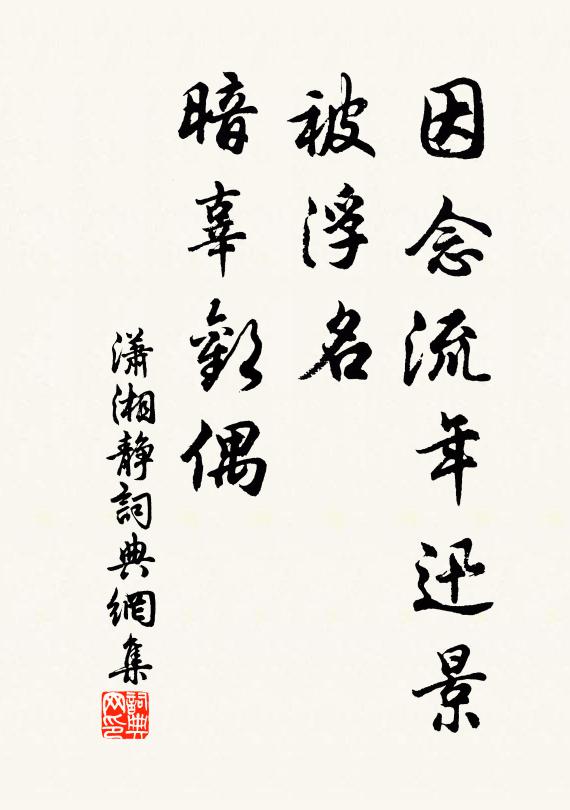 因念流年迅景
被浮名
暗辜歡偶
瀟湘静詞典網集
詞典网印